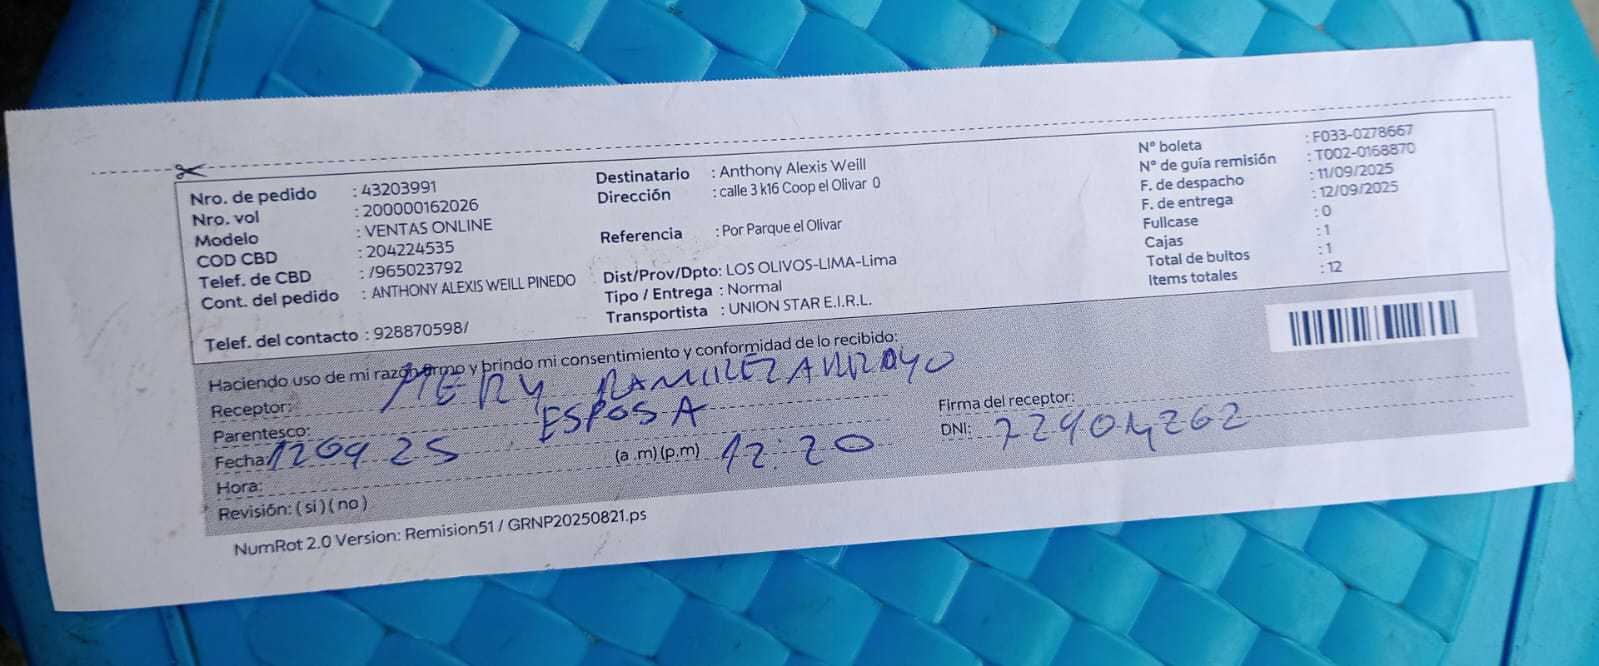 Nro. de pedido : 43203991
Nro. vol : 200000162026
Modelo : VENTAS ONLINE
COD CBD : 204224535
Telef. de CBD : /965023792
Cont. del pedido : ANTHONY ALEXIS WEILL PINEDO
Telef. del contacto : 928870598/
Destinatario : Anthony Alexis Weill
Dirección : calle 3 k16 Coop el Olivar 0
Referencia : Por Parque el Olivar
Dist/Prov/Dpto: LOS OLIVOS-LIMA-Lima
Tipo / Entrega : Normal
Transportista : UNION STAR E.I.R.L.
N° boleta : F033-0278667
N° de guía remisión : T002-0168870
F. de despacho : 11/09/2025
F. de entrega : 12/09/2025
Fullcase : 0
Cajas : 1
Total de bultos : 1
Items totales : 12
Haciendo uso de mi razón firmo y brindo mi consentimiento y conformidad de lo recibido:
Receptor: MERY RAMIREZ ARROYO
Parentesco: ESPOSA
Firma del receptor:
Fecha: 120925 (a .m) (p.m) 12:20 DNI: 72904262
Hora:
Revisión: ( si ) ( no )
NumRot 2.0 Version: Remision51 / GRNP20250821.ps